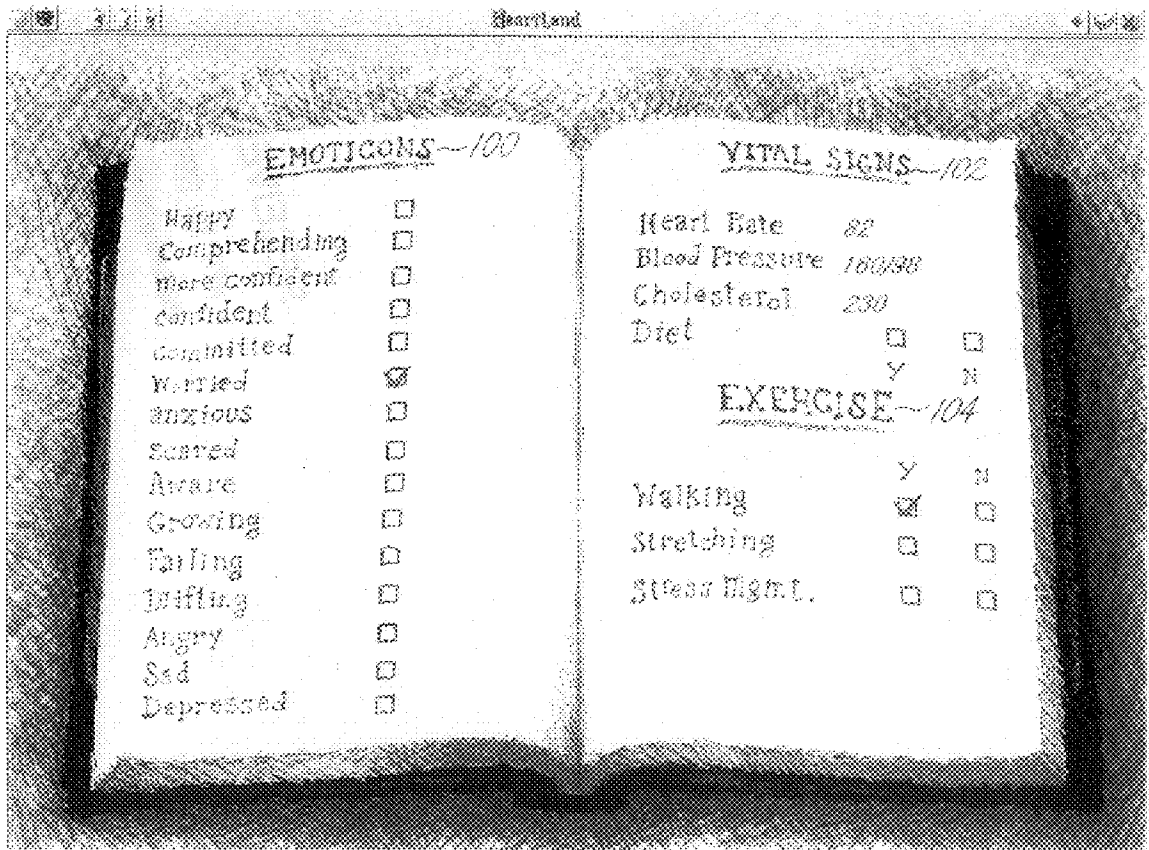 HeartLand
EMOTICONS 100
Happy
Comprehending
more confident
confident
committed
Worried
anxious
Scared
Aware
Growing
Failing
Drifting
Angry
Sad
Depressed
VITAL SIGNS 102
Heart Rate 82
Blood Pressure 160/98
Cholesterol 230
Diet
Y N
EXERCISE 104
Y N
Walking
Stretching
Stress Mgmt.